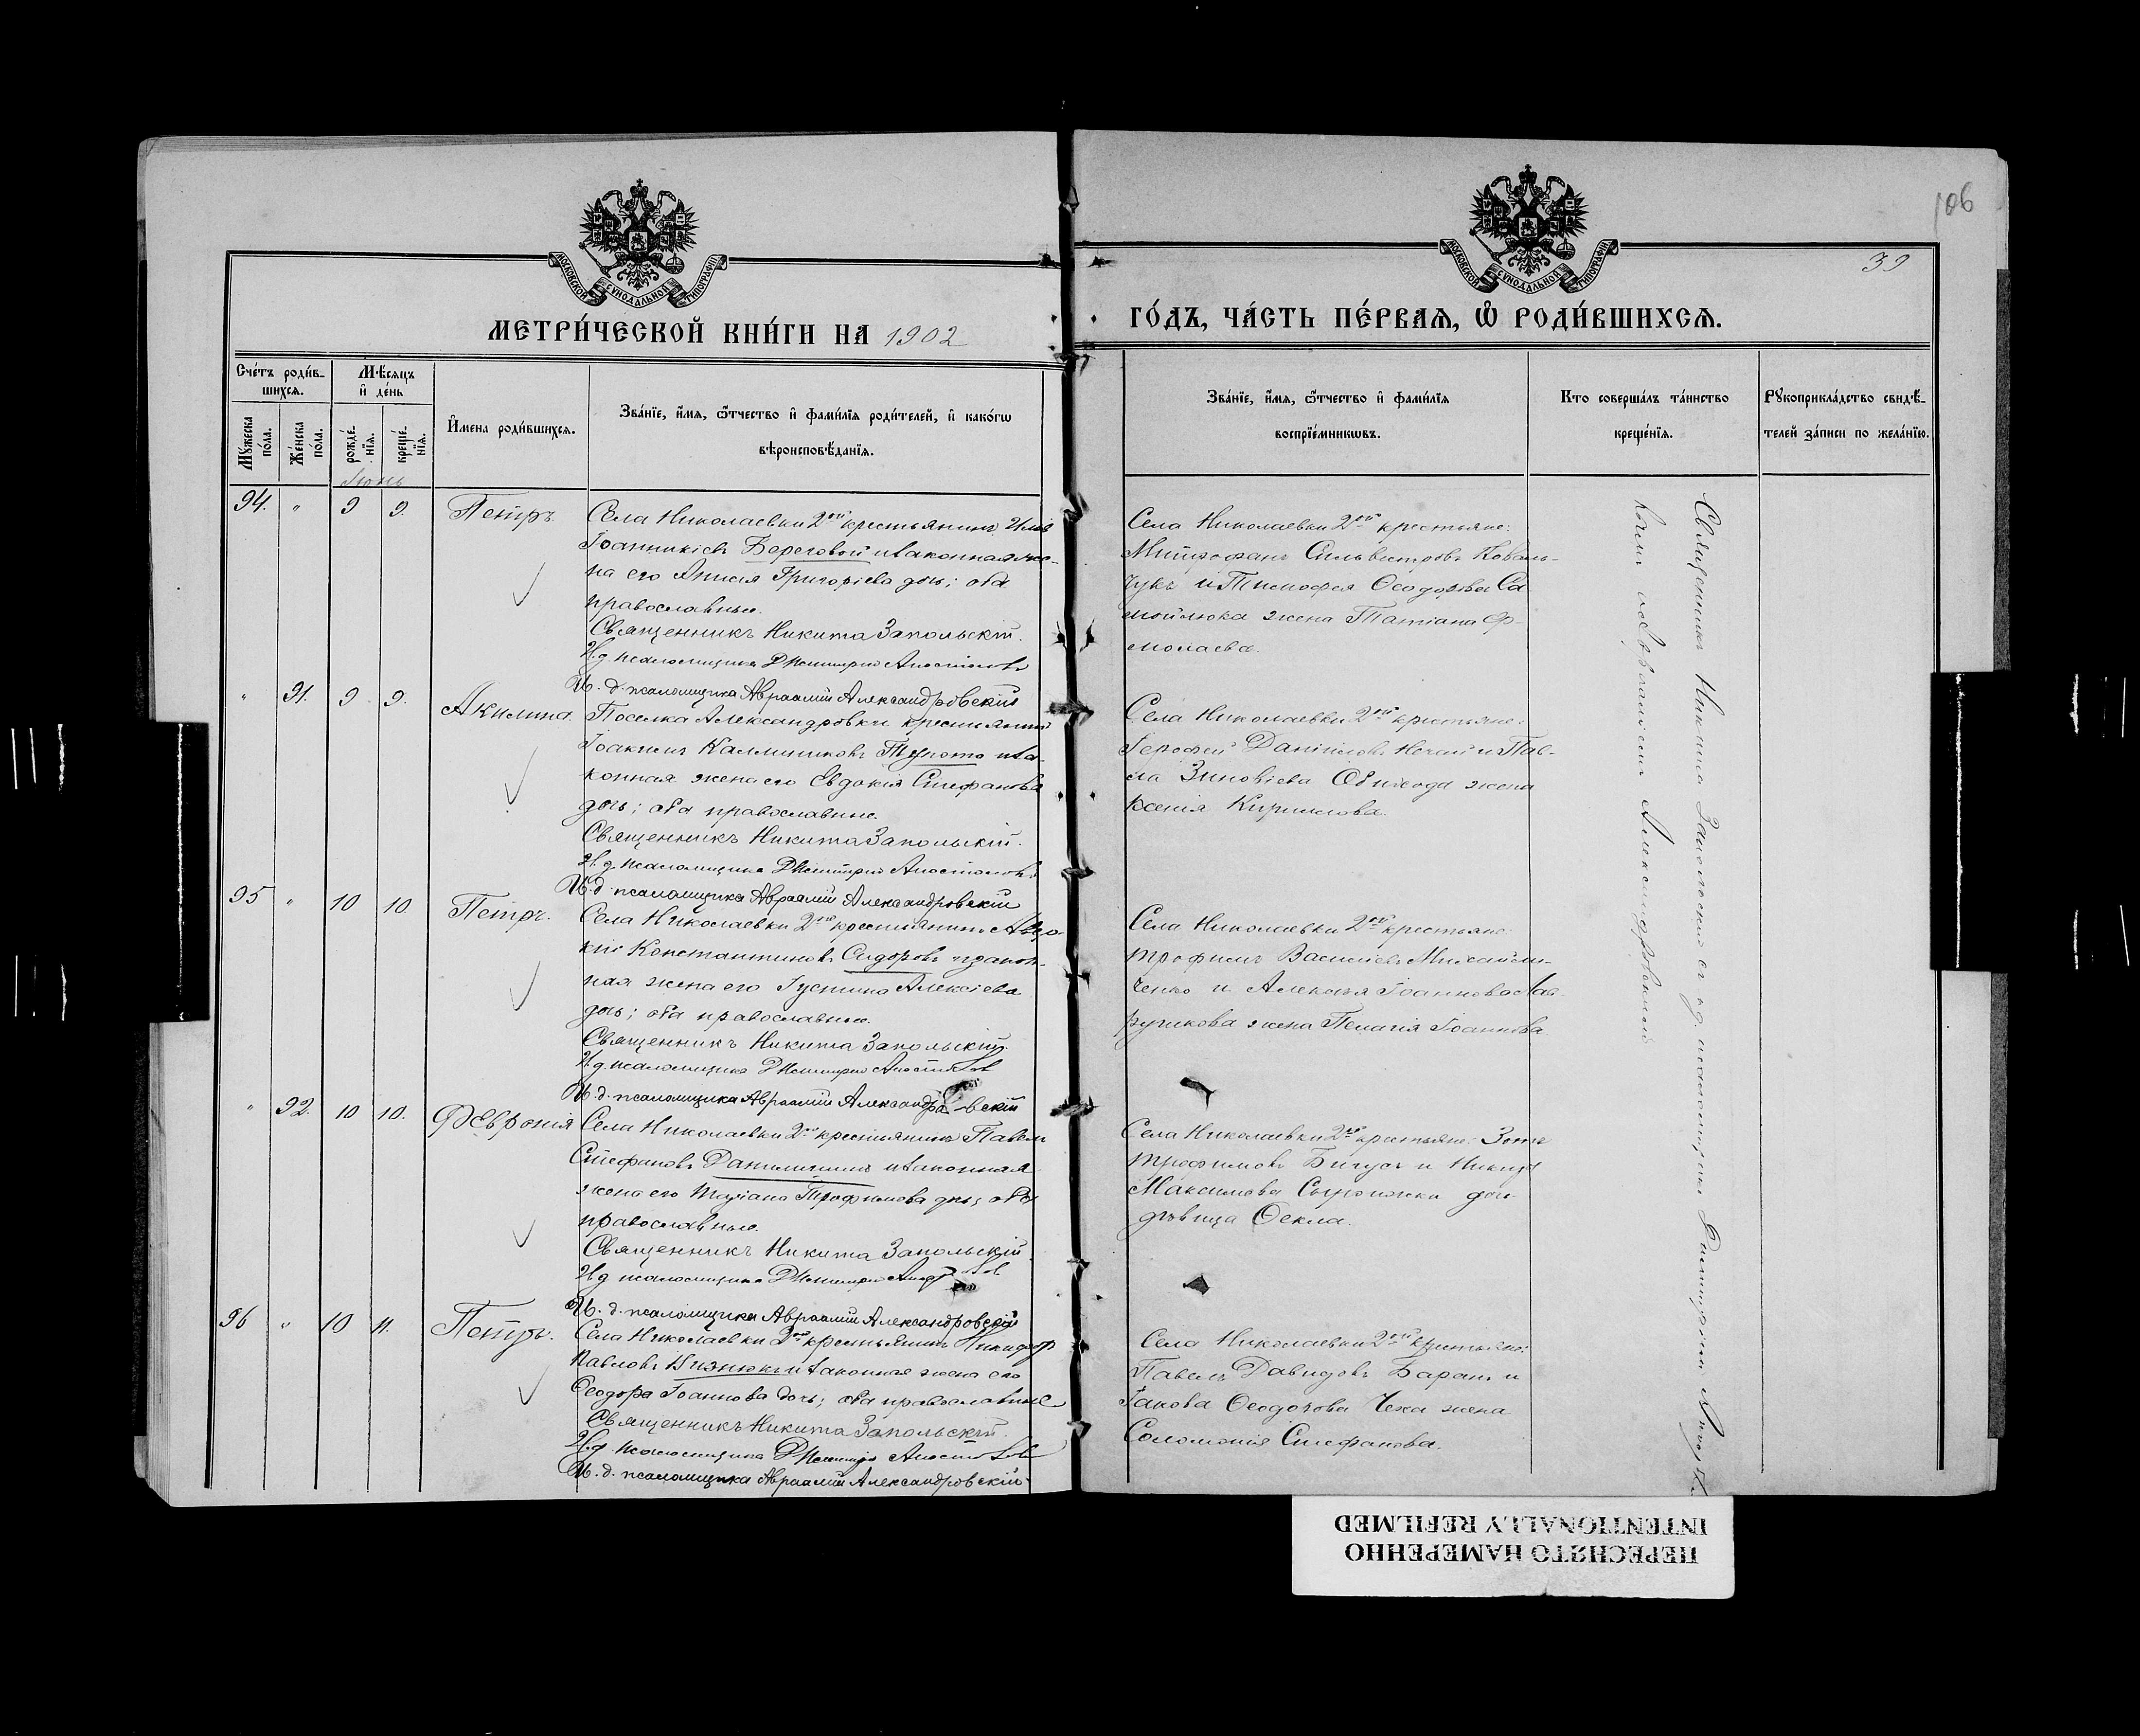 106
39
МОСКОВСКОЙ СѴНОДАЛЬНОЙ ТИПОГРАФІИ
МОСКОВСКОЙ СѴНОДАЛЬНОЙ ТИПОГРАФІИ
МЕТРИ́ЧЕСКОЙ КНИ́ГИ НА 1902
ГО́ДЪ, ЧА́СТЬ ПЕ́РВАЯ, Ѡ РОДИ́ВШИХСЯ.
Сче́тъ роди́в-
шихся.
Мѣсяцъ
и де́нь
Мꙋжеска
по́ла.
Же́нска
по́ла.
рожде́-
нїя.
креще́-
нїя.
И́мена роди́вшихся.
Зва́нїе, и́мя, ѻ҆́тчество и фами́лїя роди́телей, и како́гѡ
вѣроисповѣ́данїя.
Зва́нїе, и́мя, ѻ҆́тчество и фами́лїя
воспрїе́мникѡвъ.
Кто соверша́лъ та́инство
креще́нїя.
Рꙋкоприкла́дство свидѣ́-
телей за́писи по жела́нїю.
Іюнь
94. " 9 9. Петръ.
Села Николаевки 2ой крестьянинъ Илія
Іоанникіевъ Береговой и законная же-
на его Анисія Григоріева дочь; оба
православные.
Священникъ Никита Запольскій.
И.д. псаломщика Димитрій Апостоловъ
И. д. псаломщика Авраамій Александровскій
Села Николаевки 2ой крестьяне:
Митрофанъ Сильвестровъ Коваль-
чукъ и Тимофея Ѳеодорова Са
мойлюка жена Татіана Ер-
молаева.
" 91. 9 9. Акилина.
Поселка Александровки крестьянинъ
Іоакимъ Каллиниковъ и за-
конная жена его Евдокія Стефанова
дочь; оба православные.
Священникъ Никита Запольскій.
И.д. псаломщика Димитрій Апостоловъ
И. д. псаломщика Авраамій Александровскій
Села Николаевки 2ой крестьяне:
Іерофей Даніиловъ Нечай и Пав-
ла Зиновіева жена
Ксенія Кириллова.
95 " 10 10. Петръ.
Села Николаевки 2ой крестьянинъ Авдо-
кій Константиновъ Сидоровъ и закон-
ная жена его Іустина Алексіева
дочь; оба православные.
Священникъ Никита Запольскій.
И.д. псаломщика Димитрій Апостоловъ
И. д. псаломщика Авраамій Александровскій
Села Николаевки 2ой крестьяне:
Трофимъ Василіевъ Михайли-
ченко и Алексія Іоаннова Лав-
рушкова жена Пелагія Іоаннова
" 92. 10 10. Февронія
Села Николаевки 2ой крестьянинъ Павелъ
Стефановъ и законная
жена его Татіана Трофимова дочь; оба
православные.
Священникъ Никита Запольскій
И.д. псаломщика Димитрій Апостоловъ
И. д. псаломщика Авраамій Александровскій
Села Николаевки 2ой крестьяне: Зотъ
Трофимовъ Бигусъ и
Максимова дочь
дѣвица Ѳекла.
96 " 10 11. Петръ.
Села Николаевки 2ой крестьянинъ Никифоръ
Павловъ и законная жена его
Ѳеодора Іоаннова дочь; оба православные
Священникъ Никита Запольскій.
И.д. псаломщика Димитрій Апостоловъ
И. д. псаломщика Авраамій Александровскій
Села Николаевки 2ой крестьяне:
Павелъ Давидовъ Баранъ и
Іакова Ѳеодорова Чеха жена
Соломонія Стефанова.
Священникъ Никита Запольскій съ и.д. псаломщика Димитріемъ
Авраамiемъ Александровскимъ
ПЕРЕСНЯТО НАМЕРЕННО
INTENTIONALLY REFILMED